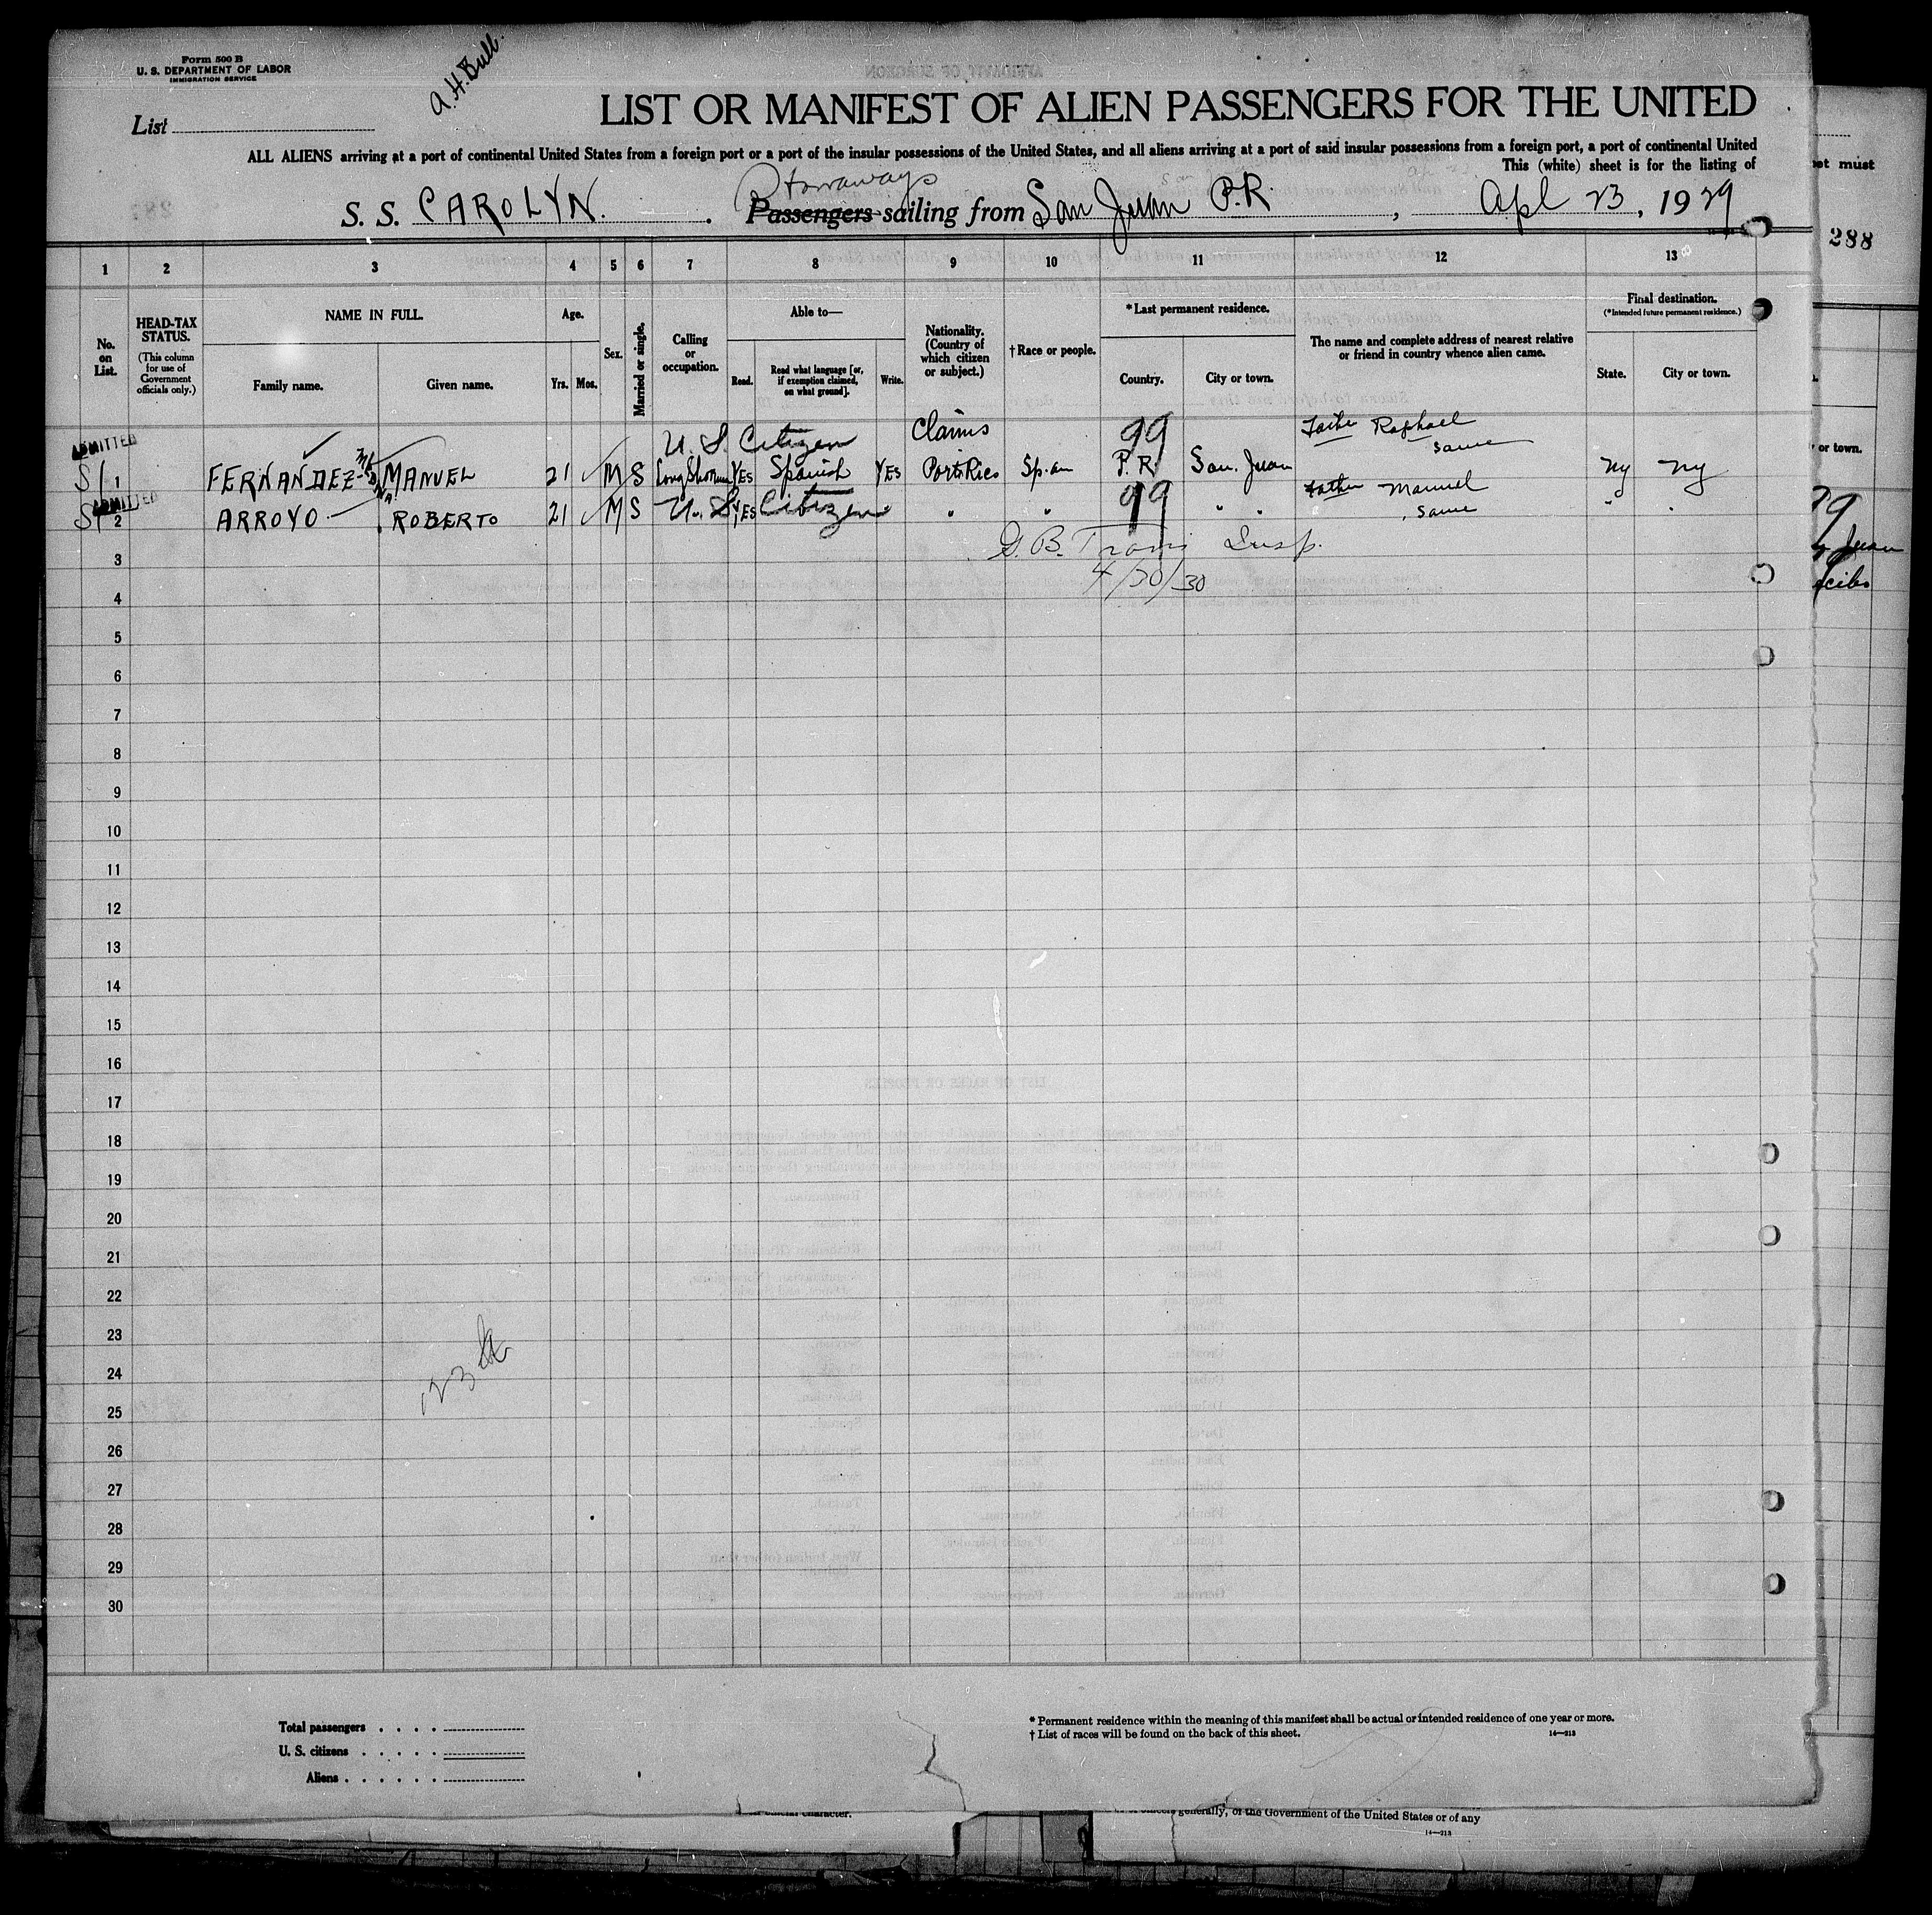 Form 500 B
U. S. DEPARTMENT OF LABOR
IMMIGRATION SERVICE
A. H. Bull.
List
LIST OR MANIFEST OF ALIEN PASSENGERS FOR THE UNITED
ALL ALIENS arriving at a port of continental United States from a foreign port or a port of the insular possessions of the United States, and all aliens arriving at a port of said insular possessions from a foreign port, a port of continental United
This (white) sheet is for the listing of
Stowaways
S. S. CAROLYN. Passengers sailing from San Juan P.R. , Apl 23, 1929
288
1 2 3 4 5 6 7 8 9 10 11 12 13
No. on List.
HEAD-TAX STATUS.
(This column for use of Government officials only.)
NAME IN FULL.
Family name. Given name.
Age.
Yrs. Mos.
Sex.
Married or single.
Calling or occupation.
Able to—
Read. Read what language [or, if exemption claimed, on what ground]. Write.
Nationality. (Country of which citizen or subject.)
† Race or people.
* Last permanent residence.
Country. City or town.
The name and complete address of nearest relative or friend in country whence alien came.
Final destination.
(* Intended future permanent residence.)
State. City or town.
ADMITTED U. S. Citizen Claims 99 Father Raphael
S/ 1 FERNANDEZ MANUEL 21 M S Longshoreman YES Spanish YES Porto Rico Sp. am P. R. San. Juan same NY NY
ADMITTED 99 Father Manuel
S/ 2 ARROYO ROBERTO 21 M S U. S. YES Citizen " " " " same " "
3 G. B. Travis Insp.
4 4/30/30
5
6
7
8
9
10
11
12
13
14
15
16
17
18
19
20
21
22
23
24
25
26
27
28
29
30
Total passengers
U. S. citizens
Aliens
* Permanent residence within the meaning of this manifest shall be actual or intended residence of one year or more.
† List of races will be found on the back of this sheet.
14—213
generally, of the Government of the United States or of any
14—213